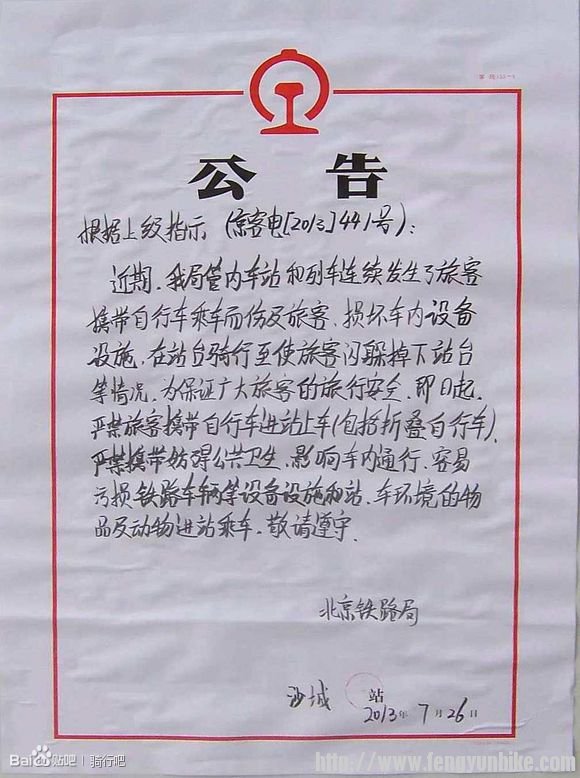 公 告
根据上级指示（京客电[2013]441号）：
近期，我局管内车站和列车连续发生了旅客
携带自行车乘车而伤及旅客、损坏车内设备
设施，在站台骑行至使旅客闪躲掉下站台
等情况，为保证广大旅客的旅行安全，即日起，
严禁旅客携带自行车进站上车(包括折叠自行车)，
严禁携带妨碍公共卫生、影响车内通行、容易
污损铁路车辆等设备设施和站、车环境的物
品及动物进站乘车。敬请遵守.
北京铁路局
沙城 站
2013年 7月26日
Bai 贴吧 | 骑行吧
http://www.fengyunhike.com